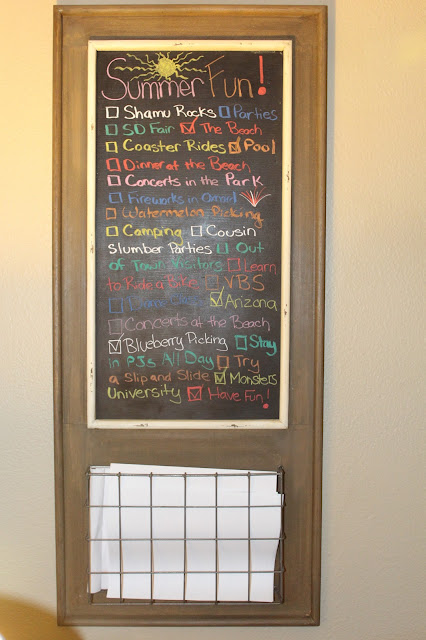 Summer Fun!
Shamu Rocks Parties
SD Fair The Beach
Coaster Rides Pool
Dinner at the Beach
Concerts in the Park
Fireworks in
Watermelon Picking
Camping Cousin
Slumber Parties Out
of Town Visitors Learn
to Ride a Bike VBS
Arizona
Concerts at the Beach
Blueberry Picking Stay
in PJs All Day Try
a Slip and Slide Monsters
University Have Fun!